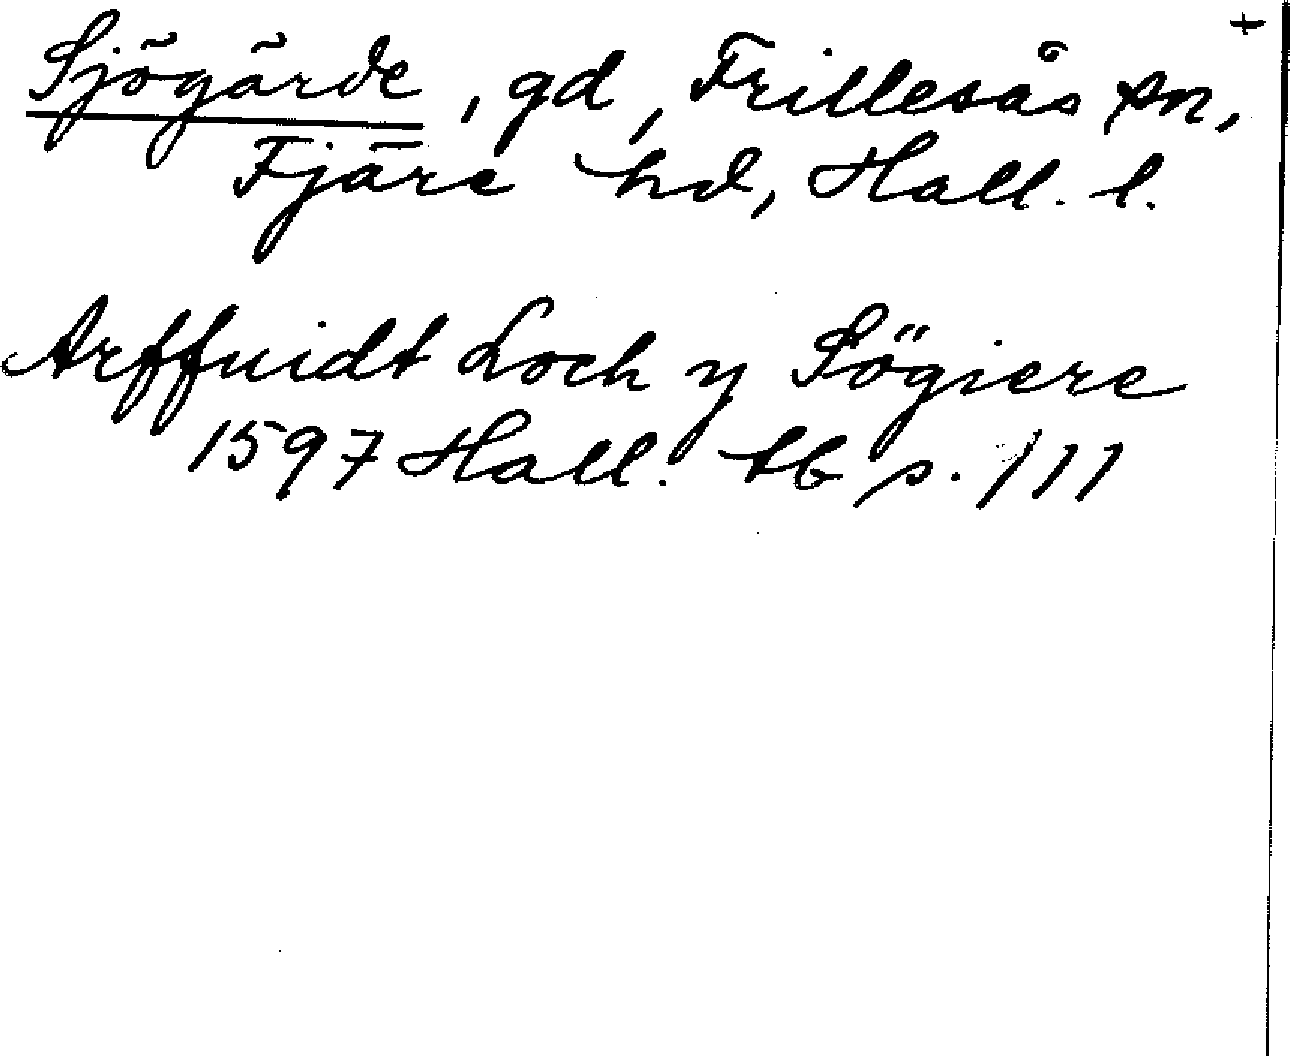 Sjögärde, gd, Frillesås sn,
Fjäre hd, Hall. l.
Arffuidt Loch y Sögiere
1597 Hall. tb s. 111